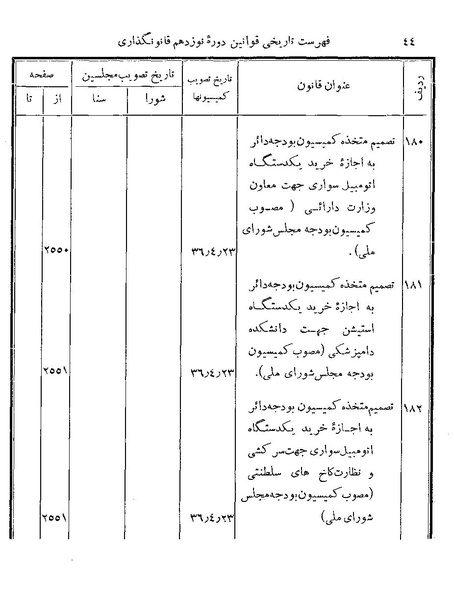 ۴۴ فهرست تاریخی قوانین دورهٔ نوزدهم قانونگذاری
ردیف عنوان قانون تاریخ تصویب کمیسیونها تاریخ تصویب مجلسین صفحه
شورا سنا از تا
۱۸۰ تصمیم متخذه کمیسیون بودجه دائر
به اجازهٔ خرید یکدستگاه
اتومبیل سواری جهت معاون
وزارت دارائی (مصوب
کمیسیون بودجه مجلس شورای
ملی). ۳۶٫۴٫۲۳ ۲۵۵۰
۱۸۱ تصمیم متخذه کمیسیون بودجه دائر
به اجازهٔ خرید یکدستگاه
استیشن جهت دانشکده
دامپزشکی (مصوب کمیسیون
بودجه مجلس شورای ملی). ۳۶٫۴٫۲۳ ۲۵۵۱
۱۸۲ تصمیم متخذه کمیسیون بودجه دائر
به اجازهٔ خرید یکدستگاه
اتومبیل سواری جهت سرکشی
و نظارت کاخ های سلطنتی
(مصوب کمیسیون بودجه مجلس
شورای ملی) ۳۶٫۴٫۲۳ ۲۵۵۱